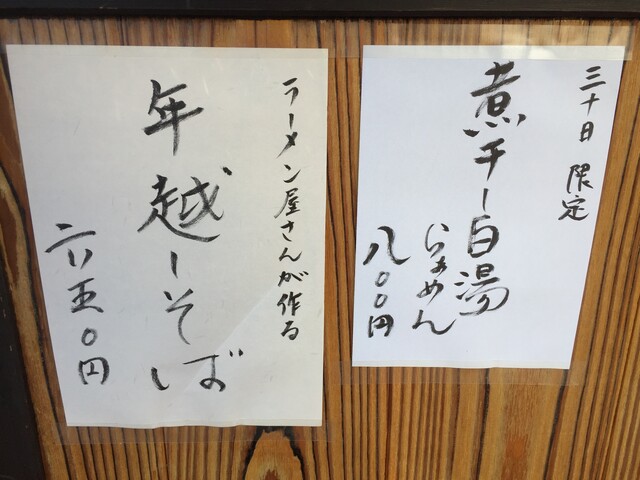 三十日 限定
煮干し白湯
らぁめん
八〇〇円
ラーメン屋さんが作る
年越しそば
六五〇円